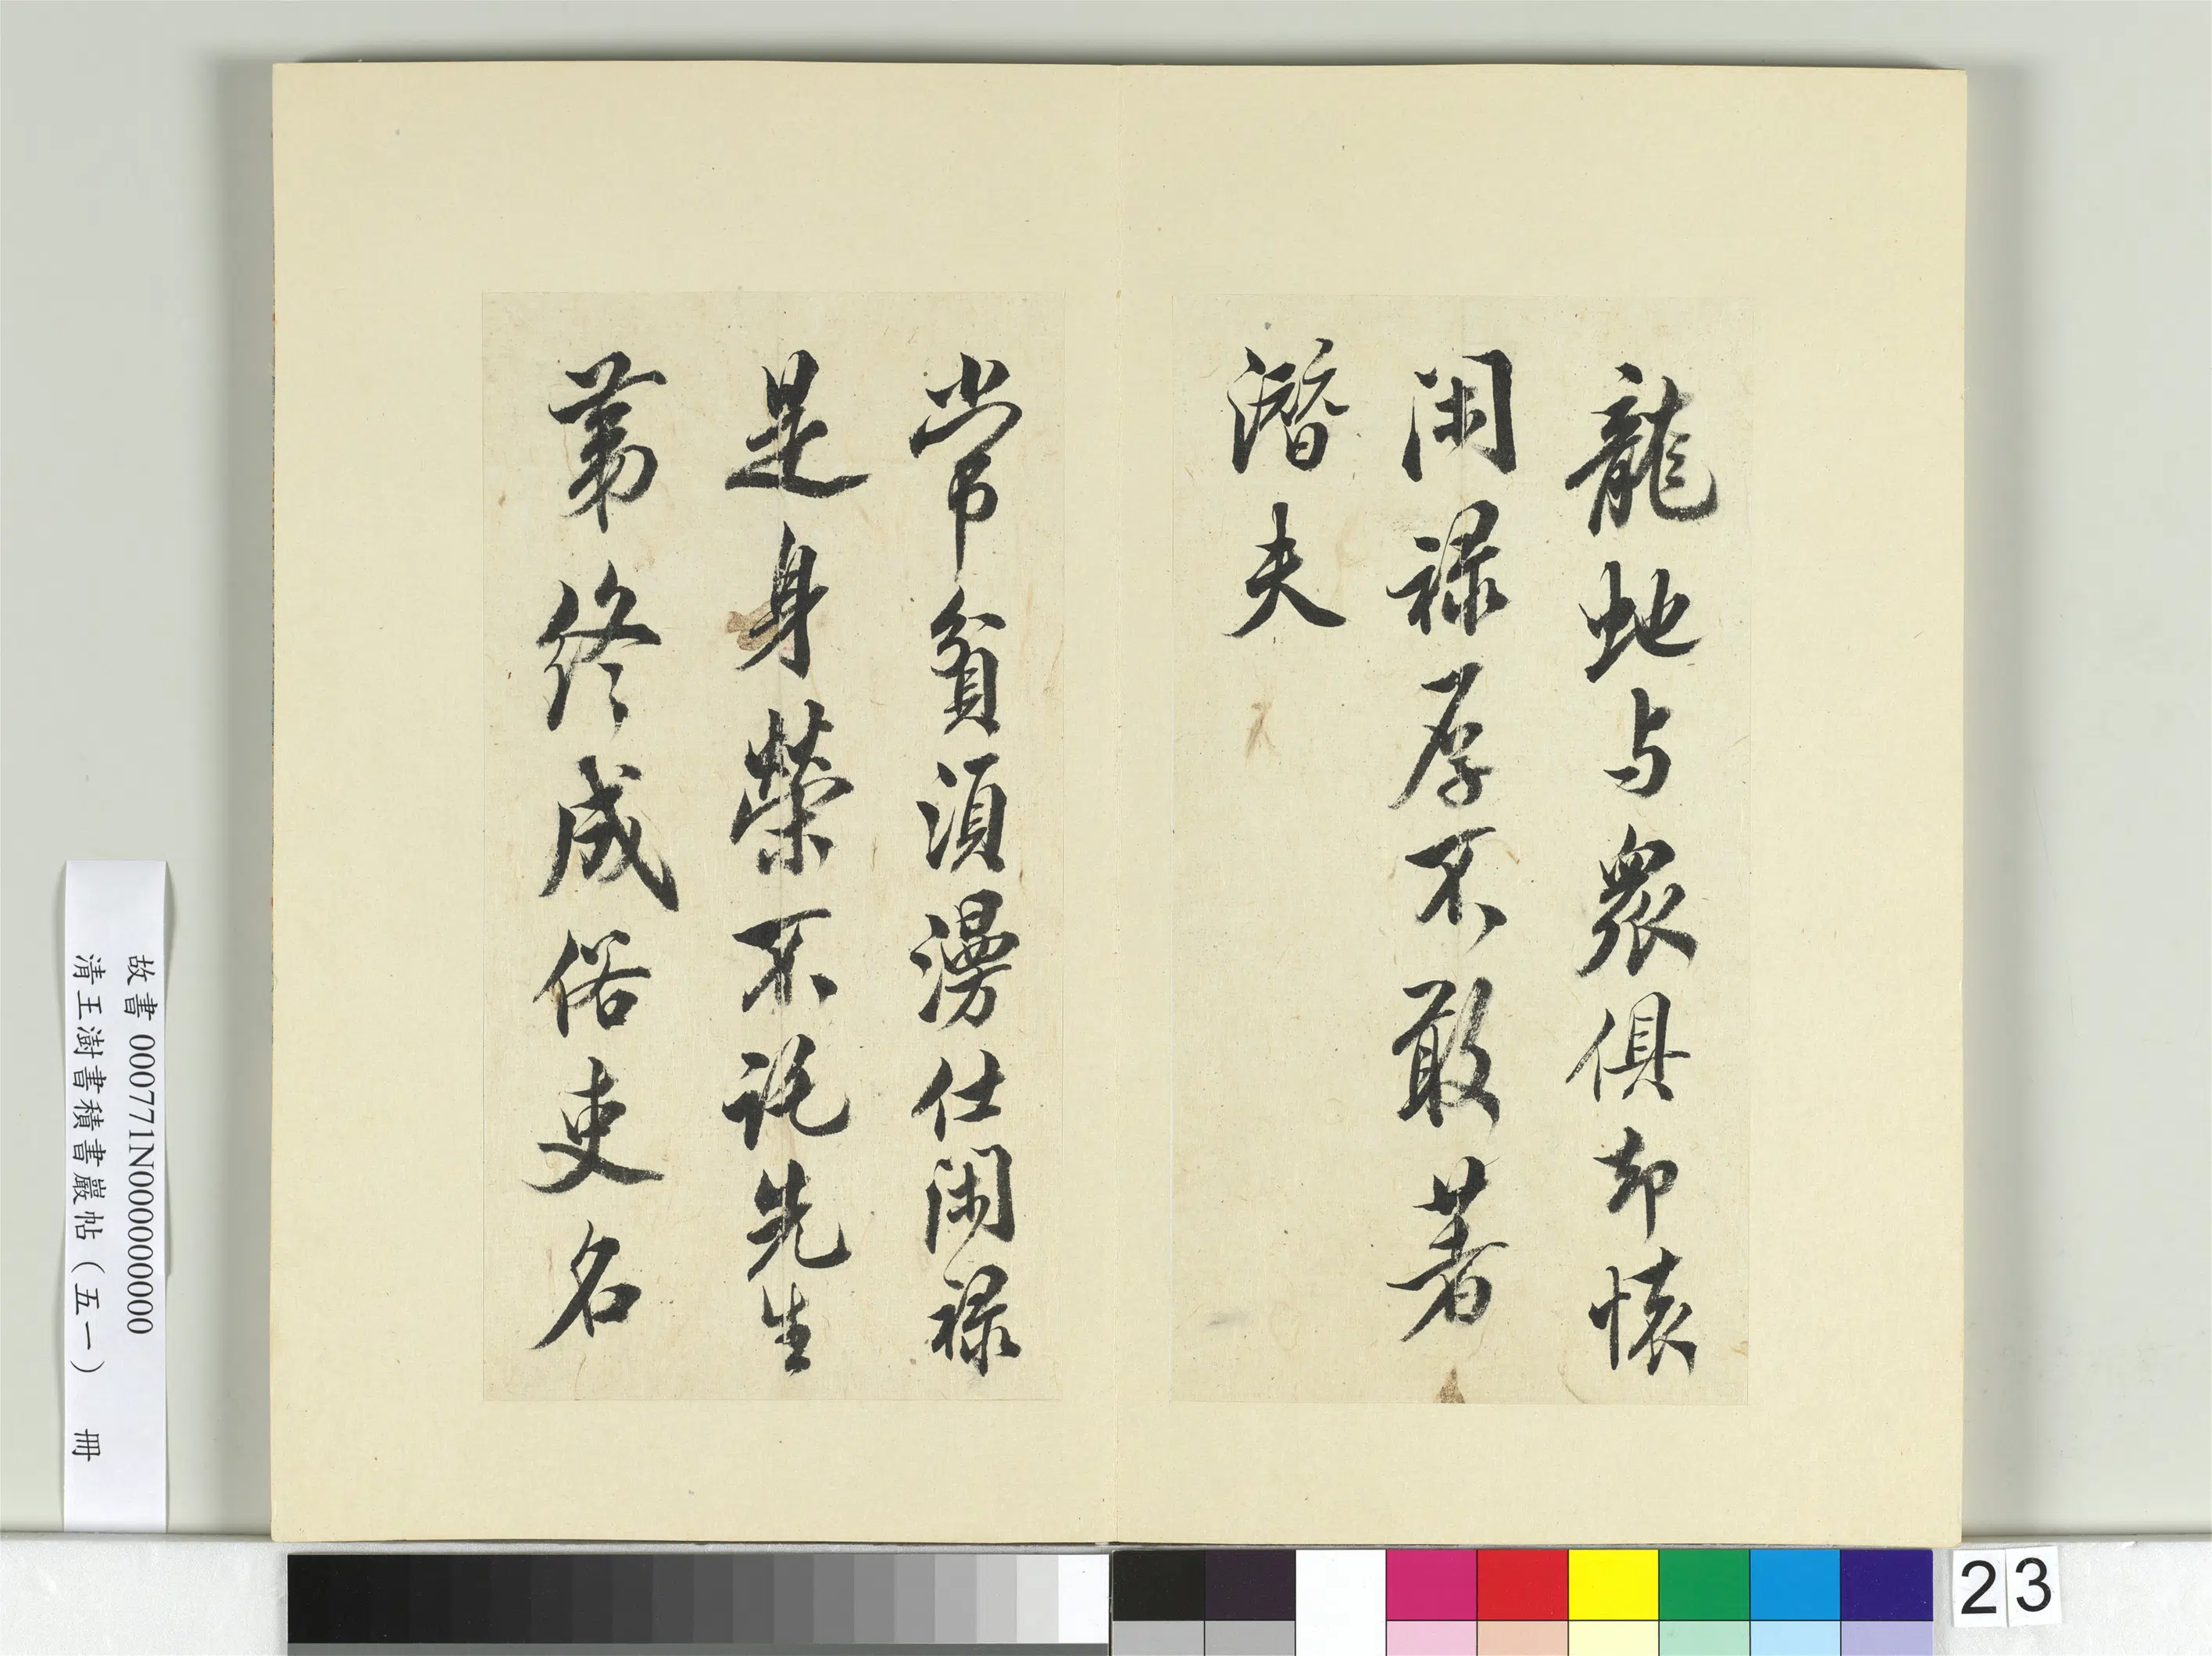 龍虵与衆俱却懐
閑禄厚不敢著
潛夫
常貧須漫仕閑禄
是身榮不託先生
第終成俗吏名
故書 000771N000000000
清王澍書積書巖帖（五一） 冊
23